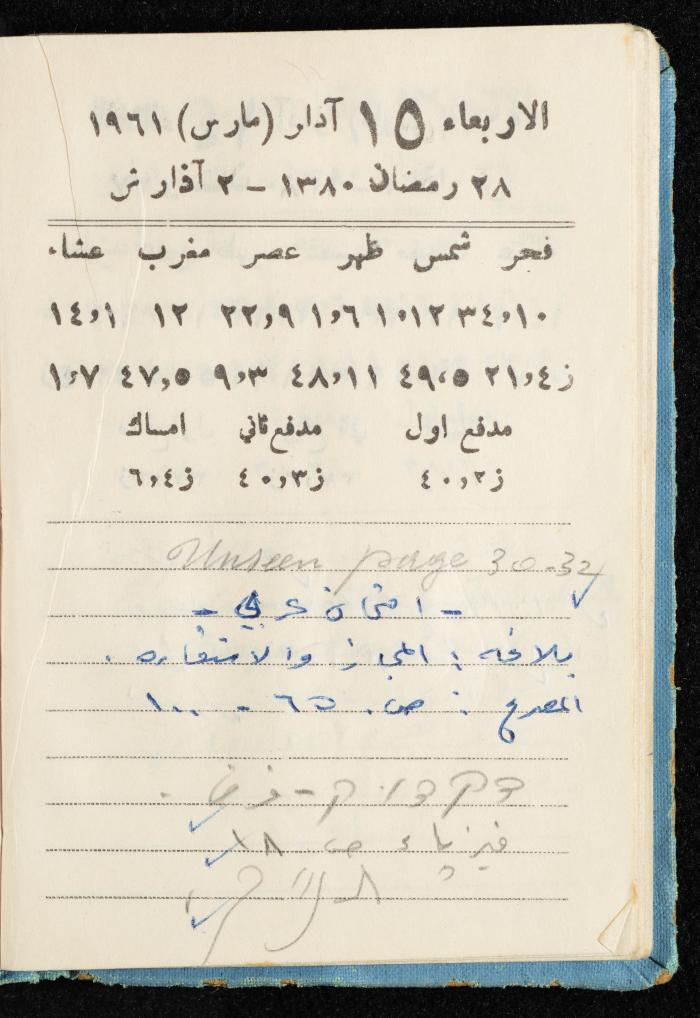 الاربعاء ١٥ آذار (مارس) ١٩٦١
٢٨ رمضان ١٣٨٠ – ٢ آذار ش
فجر شمس ظهر عصر مغرب عشاء
٣٤,١٠ ١,١٢ ١,٦ ٢٢,٩ ١٢ ١٤,١
ز٢١,٤ ٤٩,٥ ٤٨,١١ ٩,٣ ٤٧,٥ ١,٧
مدفع اول مدفع ثاني امساك
ز٤٠,٢ ز٤٠,٣ ز٦,٤
Unseen page 30-32
- امتحان عربي -
بلاغه : المجاز والاستعاره .
المسرح : ص. ٦٥ - ١٠٠
דקדוק -
فيزياء ص ١٨
תנ"ך